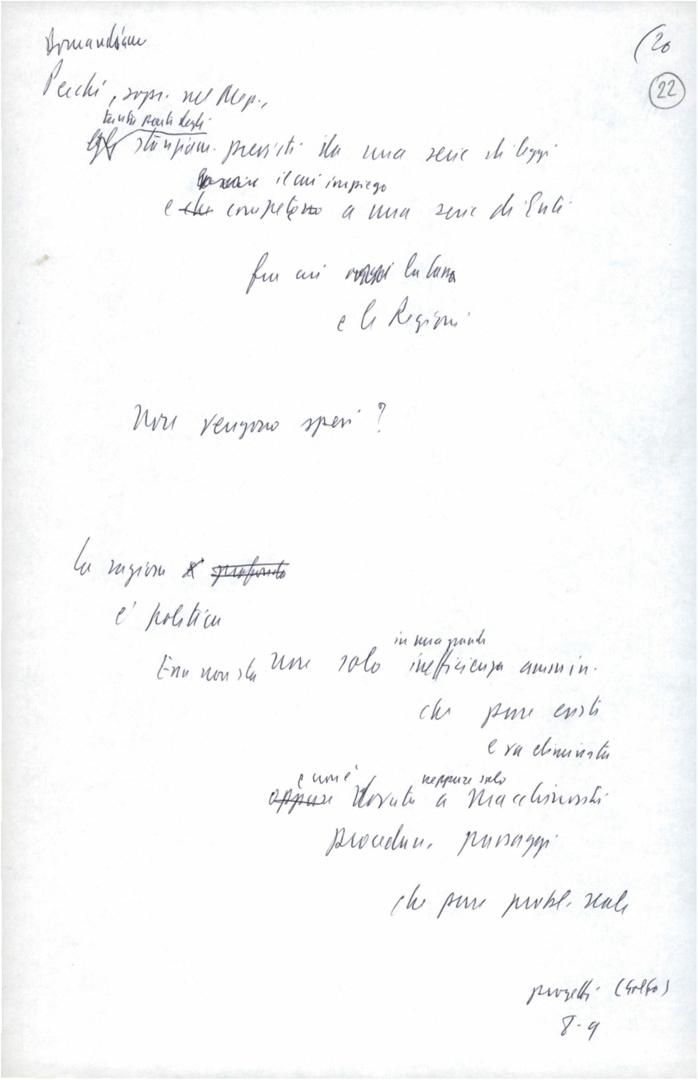 Domandiamo
(20
22
Perché, sopr. nel Mezz.,
tanta parte degli
gli stanziam. previsti da una serie di leggi
il cui impiego
e che compete a una serie di Enti
fra cui la Cassa
e le Regioni
Non vengono spesi?
La ragione è profonda
è politica
in una grande
Essa non sta non solo inefficienza ammin.
che pure esiste
e va eliminata
e non è neppure solo
oppure dovuta a macchinosità
procedure, passaggi
che pure probl. reale
progetti (Golfo)
8-9